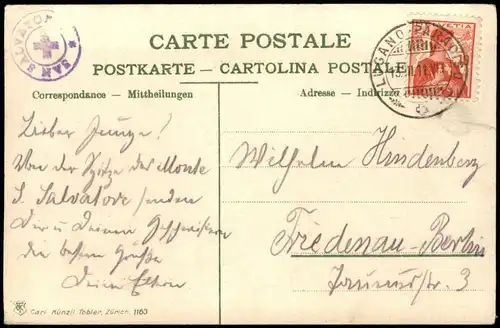 SAN SALVATORE
CARTE POSTALE
POSTKARTE – CARTOLINA POSTALE
HELVETIA
LUGANO-PARADISO
Correspondance - Mittheilungen
Adresse - Indirizzo
Lieber Junge!
Von der Spitze des Monte
S. Salvatore senden
Dir u Deinen Geschwistern
die besten Grüße
Deine Eltern
Wilhelm Hindenberg
Friedenau-Berlin
Taunusstr. 3
Carl Künzli-Tobler, Zürich. 1160